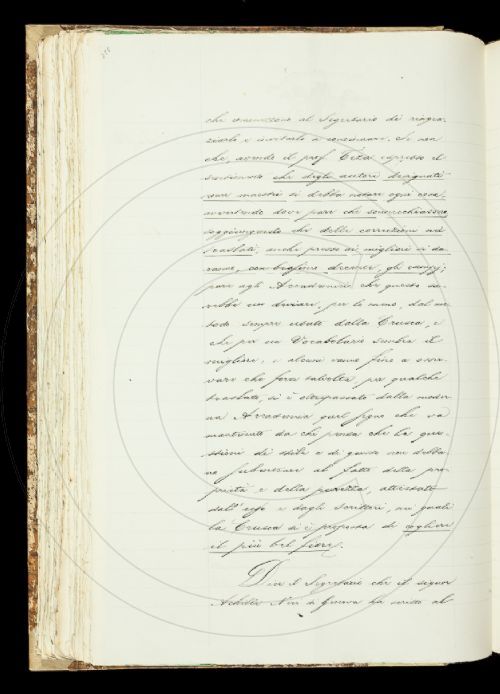 che commettono al Segretario di ringra-
ziarlo e invitarlo a continuare. Se non
che, avendo il prof. Tità espresso il
sentimento che degli autori
maestri si debba notare ogni cosa,
avvertendo dove pare che
che delle correzioni ed
traslati, anche presso ai migliori si da-
gli esempj;
pare agli Accademici che questo sa-
rebbe un deviare, per lo meno, dal me-
todo sempre usato dalla Crusca, e
che per un Vocabolario sembra il
migliore, e alcuni vanno fino a osser-
vare che forse talvolta per qualche
traslato, si è oltrepassato dalla moder-
na Accademia quel segno che va
mantenuto da chi pensa che le ques-
stioni di stile e di gusto non debba-
no al fatto della pro-
prietà e della purezza, attestate
dall' uso e dagli scrittori, nei quali
la Crusca si è proposta di cogliere
il più bel fiore.
Dice il Segretario che il signor
Achille Neri di Genova ha scritto al